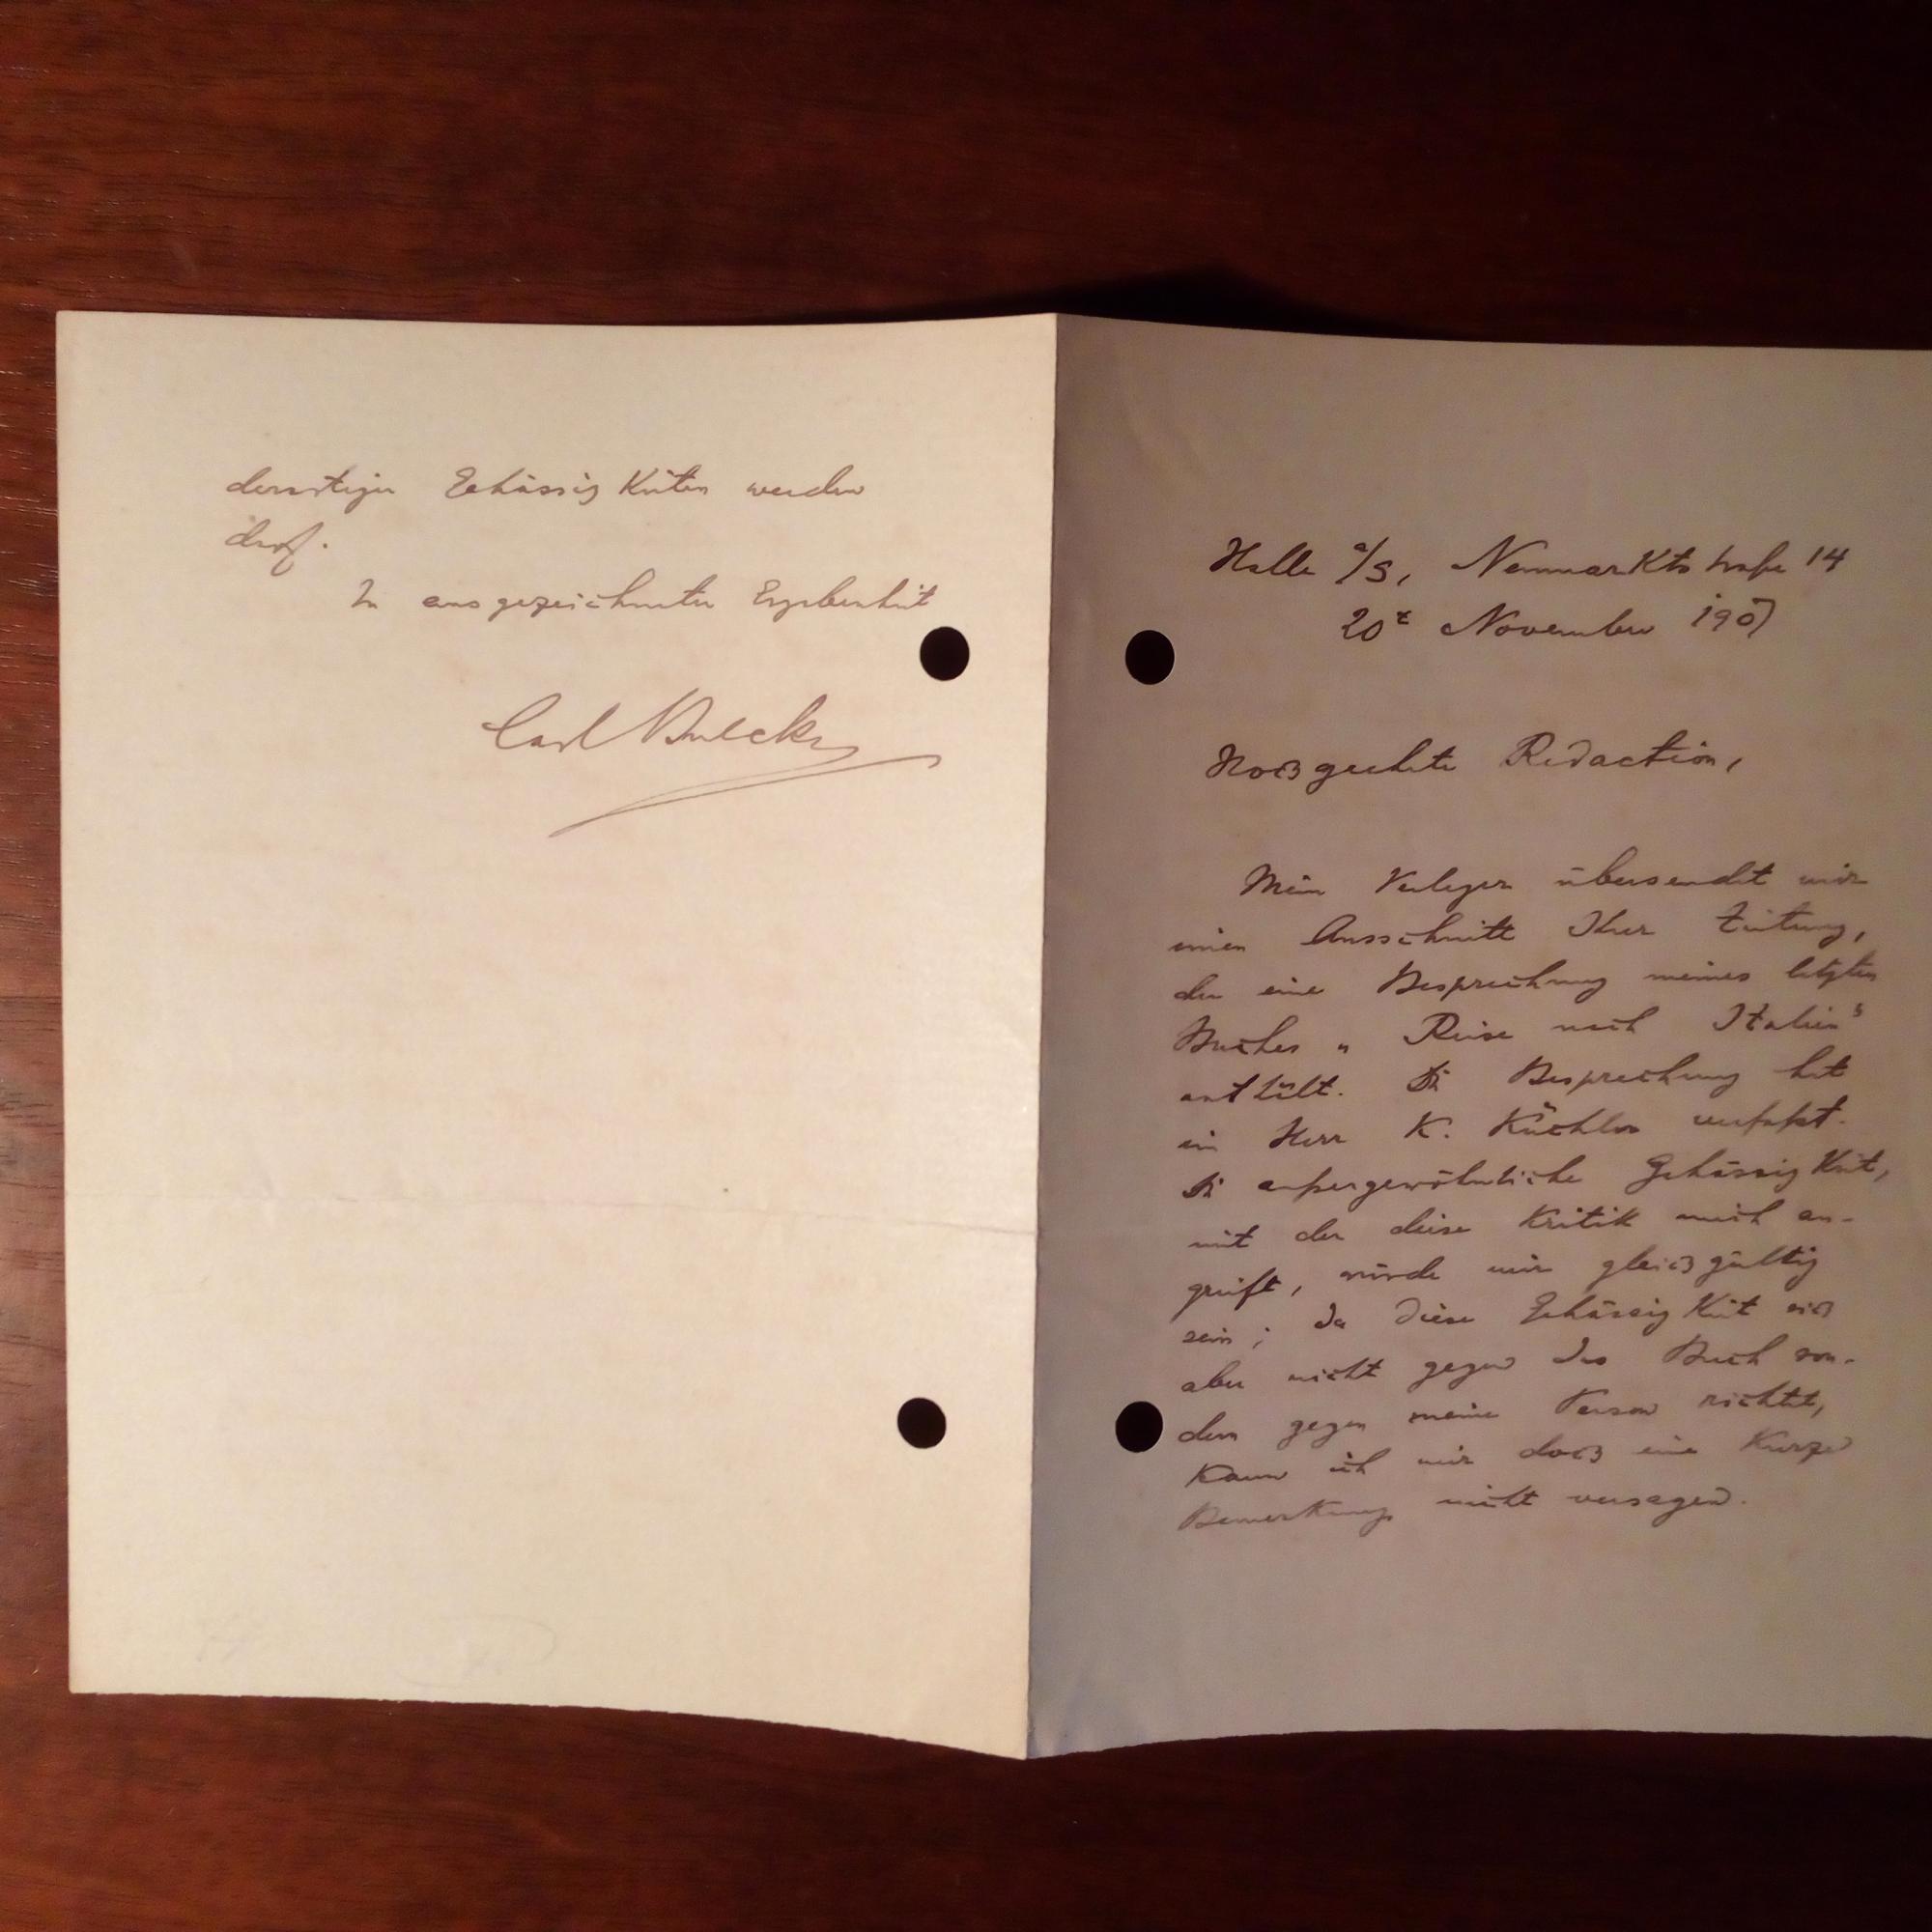 derartiger Gehässigkeiten werden
darf.
In ausgezeichneter Ergebenheit
Carl
Halle a/S, Neumarktstraße 14
20t November 1907
Hochgeehrte Redaction,
Mein Verleger übersendet mir
einen Ausschnitt Ihrer Zeitung,
der eine Besprechung meines letzten
Buches „Reise nach Italien“
enthält. Die Besprechung hat
ein Herr K. Küchler verfaßt.
Die außergewöhnliche Gehässigkeit,
mit der diese Kritik mich an-
greift, würde mir gleichgültig
sein; da diese Gehässigkeit sich
aber nicht gegen das Buch son-
dern gegen meine Person richtet,
kann ich mir doch eine kurze
Bemerkung nicht versagen.